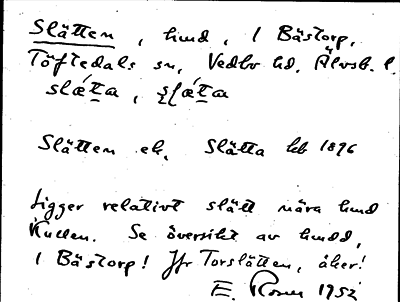 Slätten, hmd, i Bästorp,
Töftedals sn, Vedbo hd, Älvsb. l.
Slätten ek. Slätta hb 1896
Ligger relativt slätt nära hmd
Kullen. Se översikt av hmdd,
i Bästorp! Jfr Torslätten, åker!
E. Rosen 1952